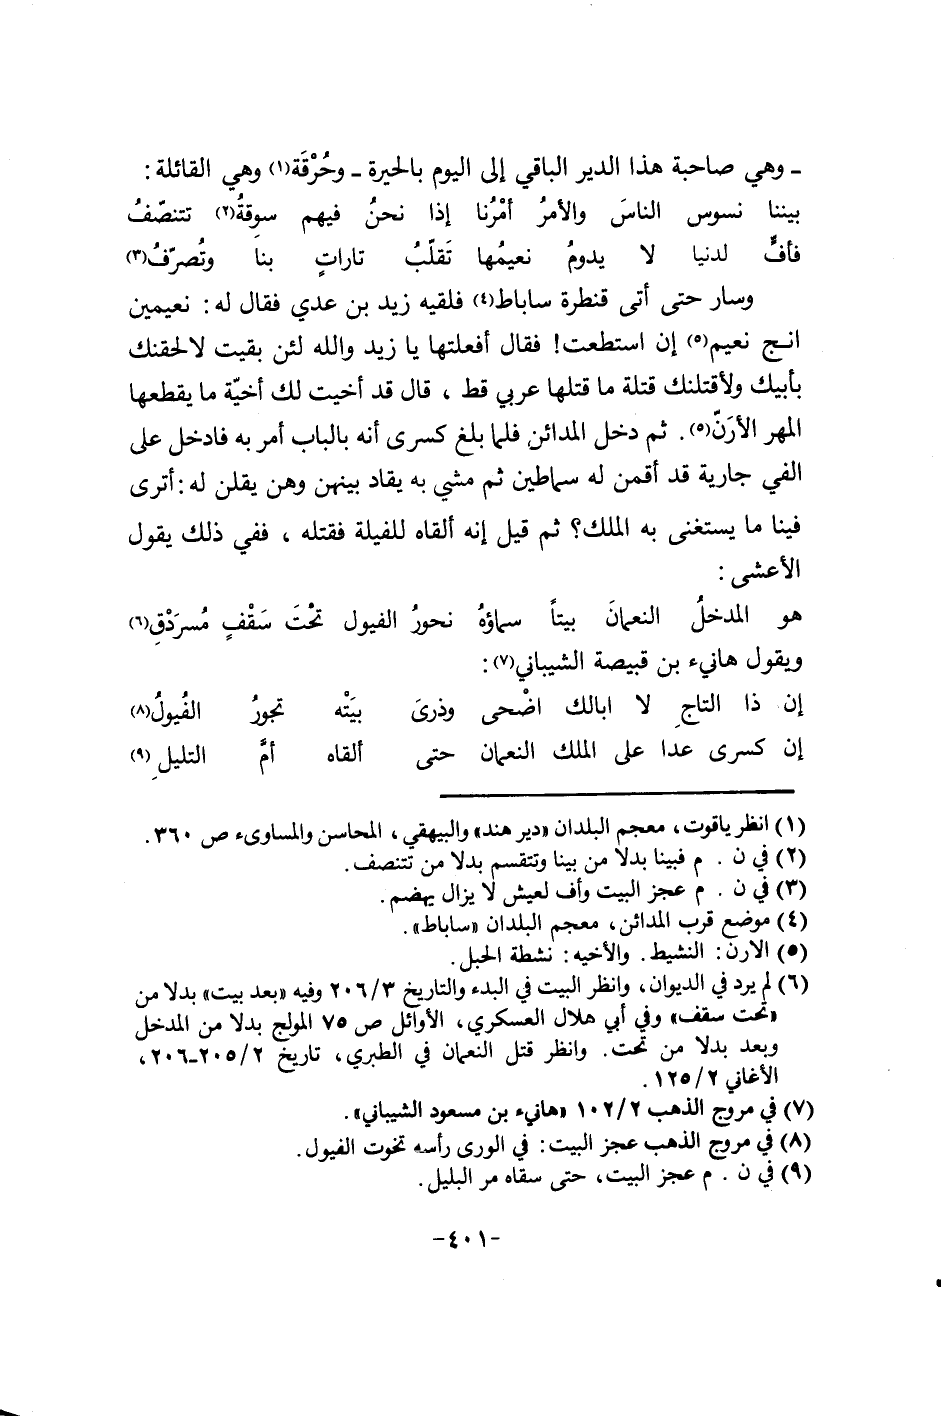 ـ وهي صاحبة هذا الدير الباقي إلى اليوم بالحيرة ـ وحُرْقَة(١) وهي القائلة:
بيننا نسوس الناسَ والأمرُ أمْرُنا إذا نحنُ فيهم سوقةُ(٢) تتنصّفُ
فأفٍّ لدنيا لا يدومُ نعيمُها تَقلّبُ تاراتٍ بنا وتُصرّفُ(٣)
وسار حتى أتى قنطرة ساباط(٤) فلقيه زيد بن عدي فقال له: نعيمين
انـج نعيم(٥) إن استطعت! فقال أفعلتها يا زيد والله لئن بقيت لالحقنك
بأبيك ولأقتلنك قتلة ما قتلها عربي قط ، قال قد أخيت لك أخيّة ما يقطعها
المهر الأرَنّ(٥). ثم دخل المدائن فلما بلغ كسرى أنه بالباب أمر به فادخل على
الفي جارية قد أقمن له سماطين ثم مشي به يقاد بينهن وهن يقلن له: أترى
فينا ما يستغنى به الملك؟ ثم قيل إنه ألقاه للفيلة فقتله ، ففي ذلك يقول
الأعشى :
هو المدخلُ النعمانَ بيتاً سماؤهُ نحورُ الفيول تحْتَ سَقْفٍ مُسرَدْقِ(٦)
ويقول هانيء بن قبيصة الشيباني(٧):
إن ذا التاجِ لا ابالك اضْحى وذرىَ بيَتْه تجورُ الفُيولُ(٨)
إن كسرى عدا على الملك النعمان حتى ألقاه أمَّ التليلِ(٩)
(١) انظر ياقوت، معجم البلدان «دير هند» والبيهقي، المحاسن والمساوىء ص ٣٦٠.
(٢) في ن . م فبينا بدلا من بينا وتتقسم بدلا من تتنصف.
(٣) في ن . م عجز البيت وأف لعيش لا يزال يهضم.
(٤) موضع قرب المدائن، معجم البلدان «ساباط».
(٥) الارن: النشيط. والأخيه: نشطة الحبل.
(٦) لم يرد في الديوان، وانظر البيت في البدء والتاريخ ٢٠٦/٣ وفيه «بعد بيت» بدلا من
«تحت سقف» وفي أبي هلال العسكري، الأوائل ص ٧٥ المولج بدلا من المدخل
وبعد بدلا من تحت. وانظر قتل النعمان في الطبري، تاريخ ٢٠٥/٢ـ٢٠٦،
الأغاني ١٢٥/٢.
(٧) في مروج الذهب ١٠٢/٢ «هانيء بن مسعود الشيباني».
(٨) في مروج الذهب عجز البيت: في الورى رأسه تخوت الفيول.
(٩) في ن . م عجز البيت، حتى سقاه مر البليل.
-٤٠١-